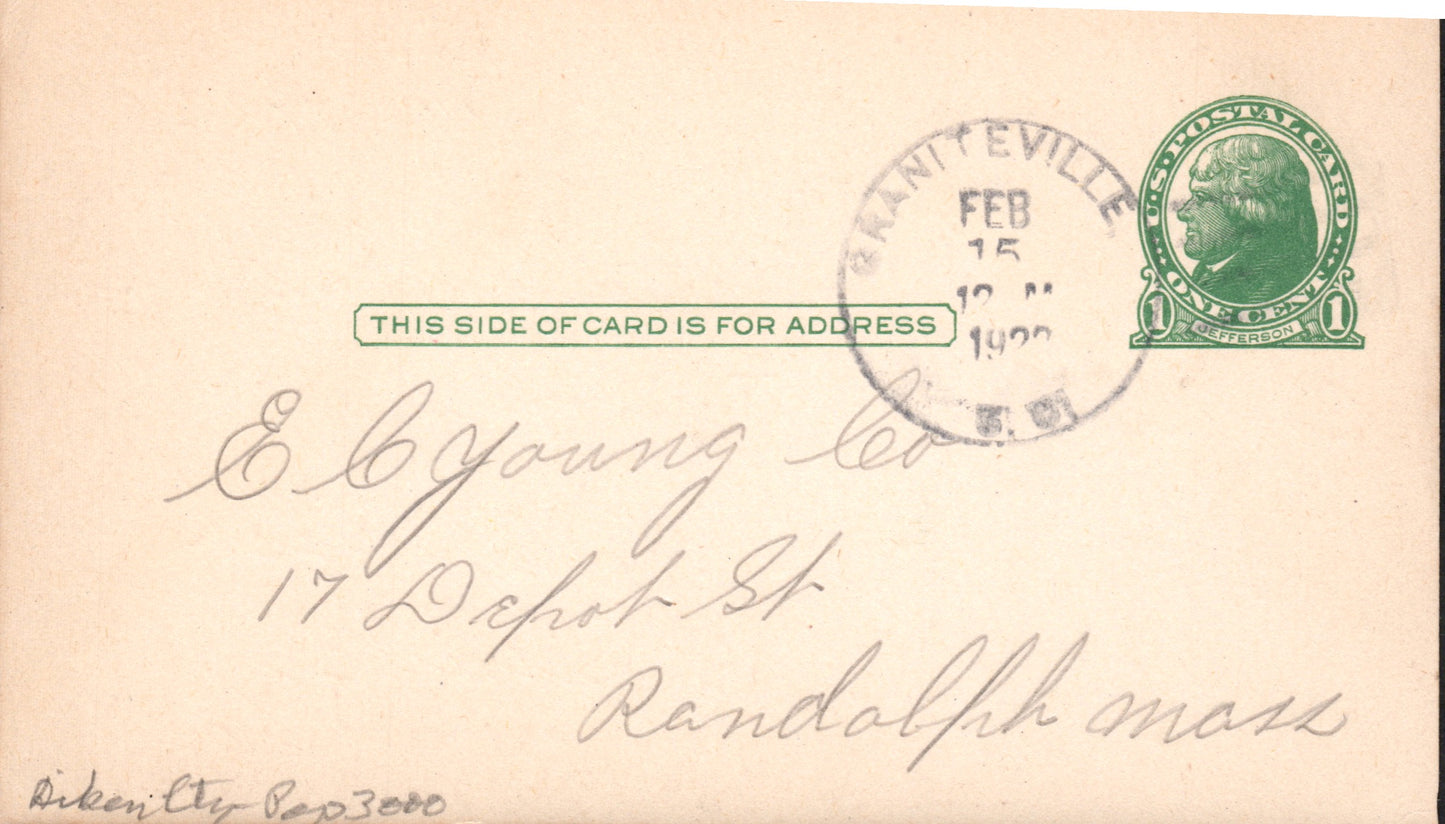 U.S. POSTAL CARD
ONE CENT
1 JEFFERSON 1
GRANITEVILLE
FEB
15
12 M
S. C.
THIS SIDE OF CARD IS FOR ADDRESS
E C Young Co
17 Depot St
Randolph Mass
Aiken Cty Pop 3000